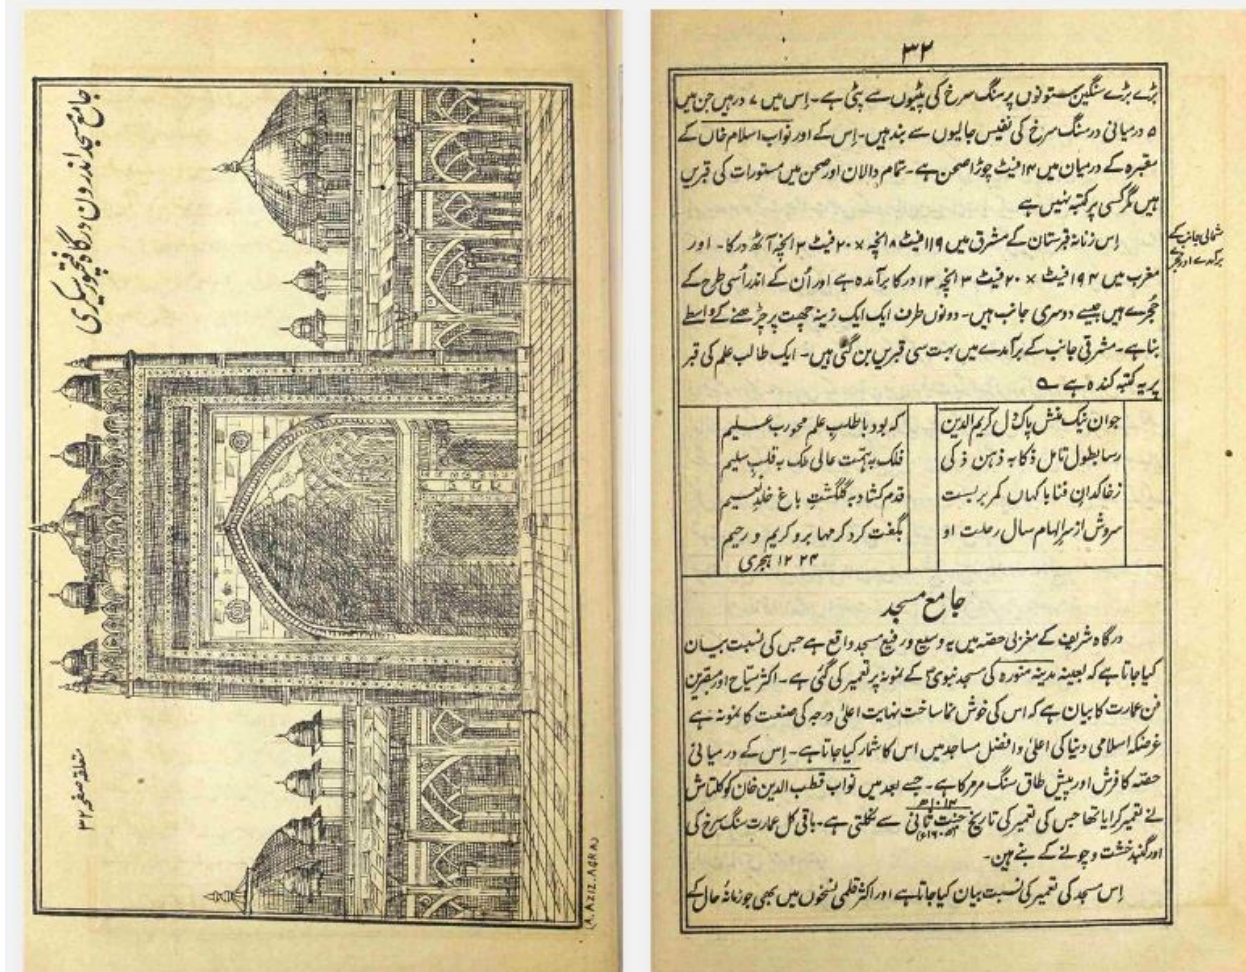 جامع مسجد اندرون درگاہ فتحپور سیکری
متعلقہ صفحہ ۳۲
(A. AZIZ. AGRA)
۳۲
بڑے بڑے سنگین ستونوں پر سنگ سرخ کی پٹیوں سے پٹی ہے۔ اِس میں ۷ درہیں جن میں
۵ درمیانی در سنگ سرخ کی نفیس جالیوں سے بند ہیں۔ اِس کے اور نواب اسلام خاں کے
مقبرہ کے درمیان میں ۱۴ فیٹ چوڑا صحن ہے۔ تمام دالان اور صحن میں مستورات کی قبریں
ہیں مگر کسی پر کتبہ نہیں ہے
شمالی جانب کے
برآمدے اور حجرے
اِس زنانہ قبرستان کے مشرق میں ۱۱۹ فیٹ ۸ انچہ × ۲۰ فیٹ ۲ انچہ آٹھ درکا۔ اور
مغرب میں ۱۹۴ فیٹ × ۲۰ فیٹ ۳ انچہ ۱۳ درکا برآمدہ ہے اور اُن کے اندر اُسی طرح کے
حُجرے ہیں جیسے دوسری جانب ہیں۔ دونوں طرف ایک ایک زینہ چھت پر چڑھنے کے واسطے
بنا ہے۔ مشرقی جانب کے برآمدے میں بہت سی قبریں بن گئی ہیں۔ ایک طالب علم کی قبر
پر یہ کتبہ کندہ ہے
جوان نیک منش پاک دل کریم الدین کہ بود با طلبِ علم محو رب علیم
رسا بطول تامل ذکا بہ ذہن ذکی فلک بہ ہمت عالی ملک بہ قلب سلیم
زخاکدان فنا ناگہاں کمر بربست قدم کشاد بہ گلگشتِ باغ خلد نعیم
سروش از سرِ الہام سال رحلت او بگفت کرد کرمہا برو کریم و رحیم
۱۲۲۴ ہجری
جامع مسجد
درگاہ شریف کے مغربی حصہ میں یہ وسیع و رفیع مسجد واقع ہے جس کی نسبت بیان
کیا جاتا ہے کہ بعینہ مدینہ منورہ کی مسجد نبوی کے نمونہ پر تعمیر کی گئی ہے۔ اکثر سیّاح اور مبصرین
فن عمارت کا بیان ہے کہ اس کی خوش نما ساخت نہایت اعلیٰ درجہ کی صنعت کا نمونہ ہے
غرضکہ اسلامی دنیا کی اعلیٰ و افضل مساجد میں اس کا شمار کیا جاتا ہے۔ اِس کے درمیانی
حصّہ کا فرش اور پیش طاق سنگ مرمر کا ہے۔ جسے بعد میں نواب قطب الدین خان کوکلتاش
نے تعمیر کرایا تھا جس کی تعمیر کی تاریخ جنت ثانی سے نکلتی ہے۔ باقی کل عمارت سنگ سرخ کی
اور گنبد خشت و چونے کے بنے ہین۔
اِس مسجد کی تعمیر کی نسبت بیان کیا جاتا ہے اور اکثر قلمی نسخوں میں بھی جو زمانۂ حال کے